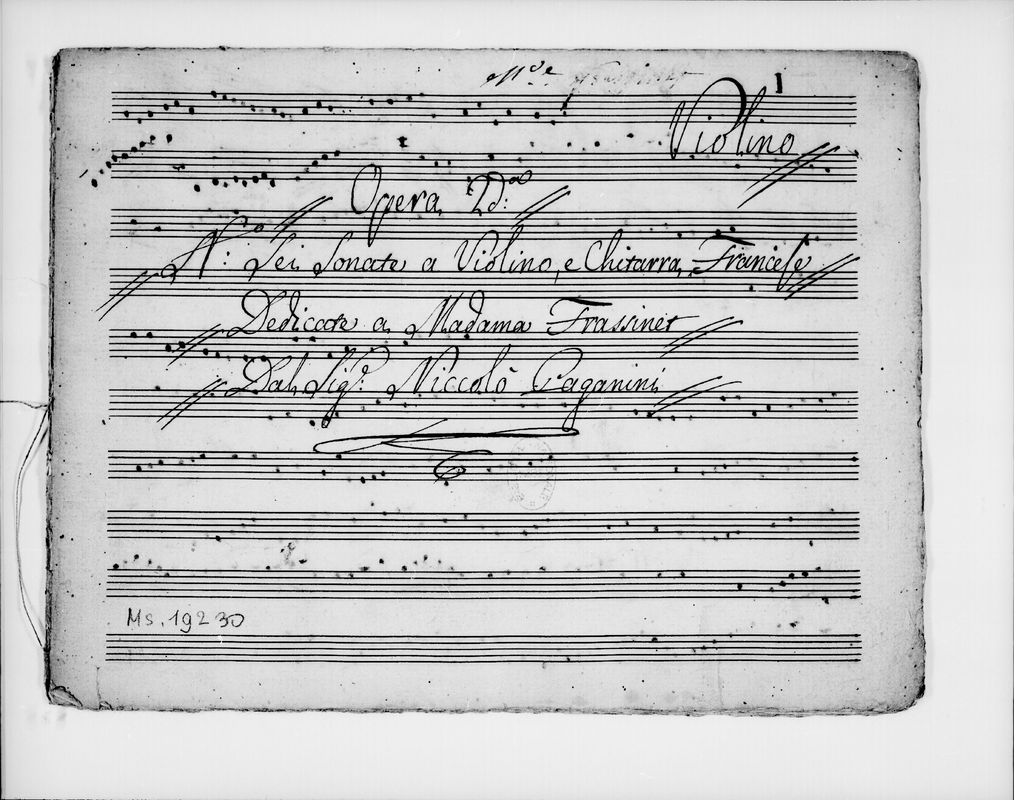 M.de Frassinet
1
Violino
Opera 2.da
N.o 6: Sei Sonate a Violino, e Chitarra Francese
Dedicate a Madama Frassinet
Dal Sig.r Niccolò Paganini
Ms. 19230